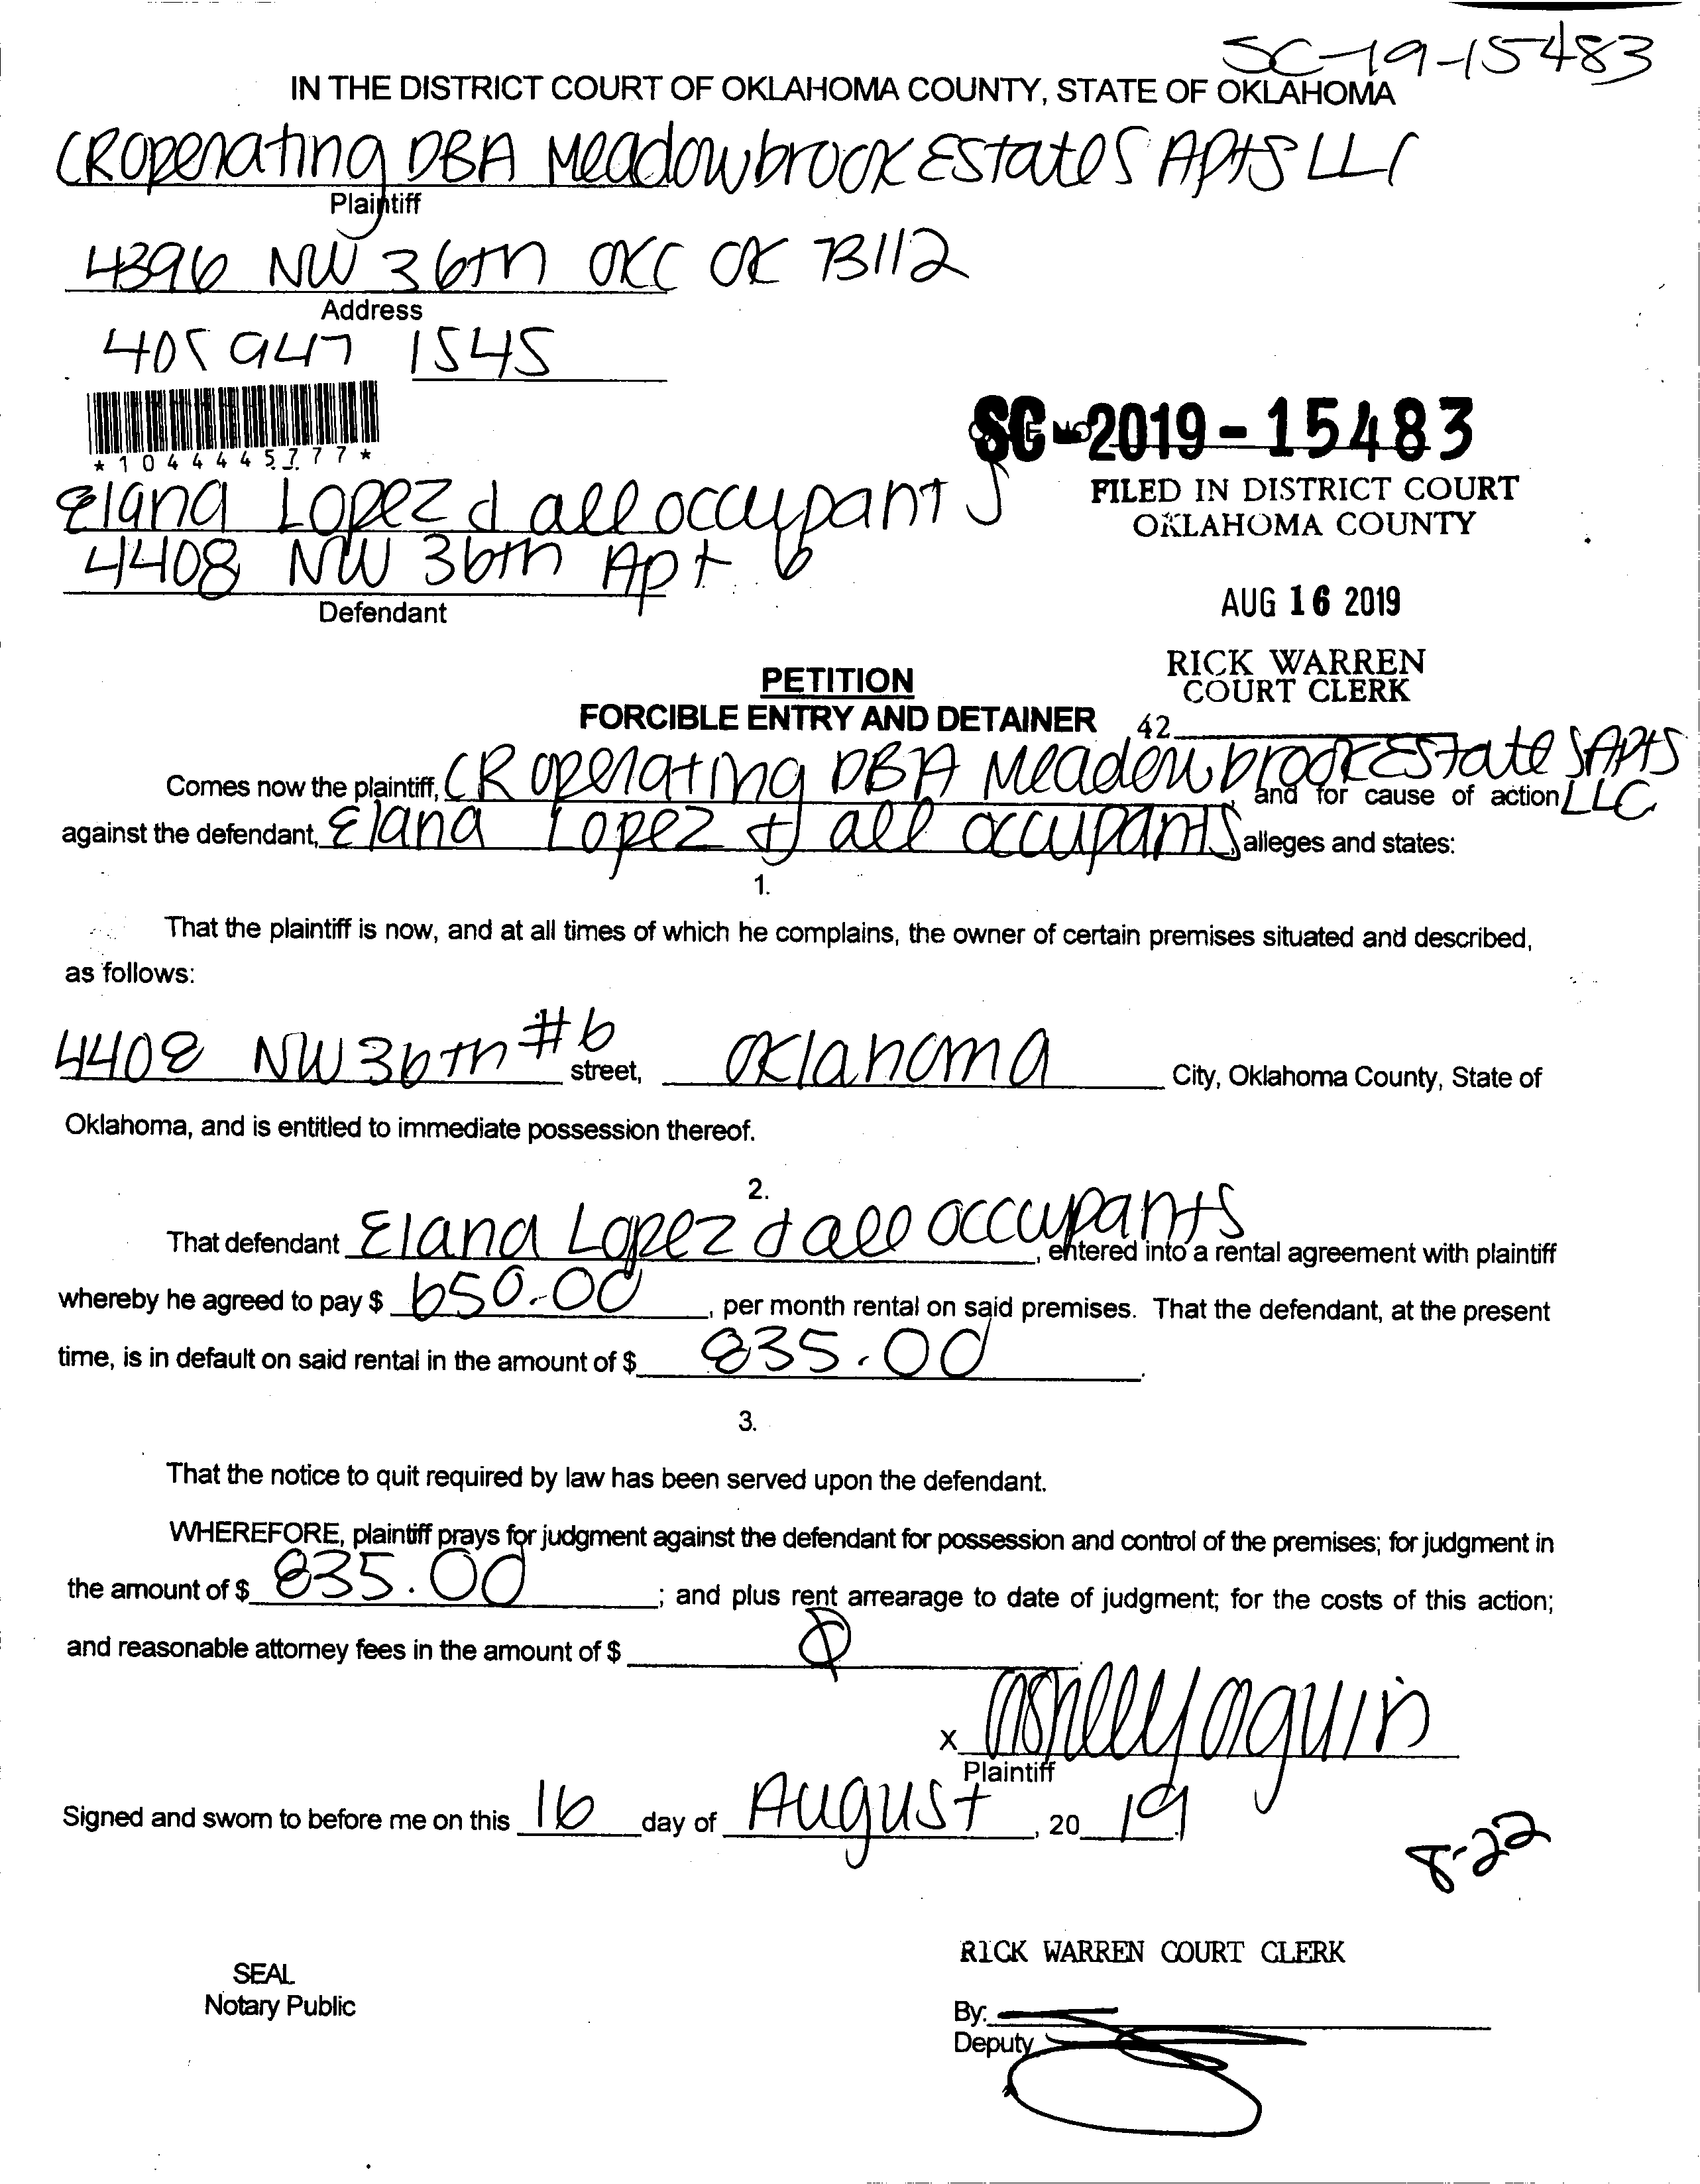 SC-19-15483
IN THE DISTRICT COURT OF OKLAHOMA COUNTY, STATE OF OKLAHOMA
CR Operating DBA Meadowbrook Estates Apts LLC
Plaintiff
4396 NW 36th OKC OK 73112
Address
405 947 1545
*1044445777*
SC-2019-15483
FILED IN DISTRICT COURT
OKLAHOMA COUNTY
Elana Lopez & all occupants
4408 NW 36th Apt 6
Defendant
AUG 16 2019
RICK WARREN
COURT CLERK
42
PETITION
FORCIBLE ENTRY AND DETAINER
Comes now the plaintiff, CR Operating DBA Meadowbrook Estates Apts LLC and for cause of action
against the defendant, Elana Lopez & all occupants, alleges and states:
1.
That the plaintiff is now, and at all times of which he complains, the owner of certain premises situated and described,
as follows:
4408 NW 36th #6 street, Oklahoma City, Oklahoma County, State of
Oklahoma, and is entitled to immediate possession thereof.
2.
That defendant Elana Lopez & all occupants, entered into a rental agreement with plaintiff
whereby he agreed to pay $ 650.00, per month rental on said premises. That the defendant, at the present
time, is in default on said rental in the amount of $ 835.00.
3.
That the notice to quit required by law has been served upon the defendant.
WHEREFORE, plaintiff prays for judgment against the defendant for possession and control of the premises; for judgment in
the amount of $ 835.00; and plus rent arrearage to date of judgment; for the costs of this action;
and reasonable attorney fees in the amount of $ 0.
x Ashley Aguin
Plaintiff
Signed and sworn to before me on this 16 day of August, 2019
8-22
RICK WARREN COURT CLERK
SEAL
Notary Public
By:
Deputy